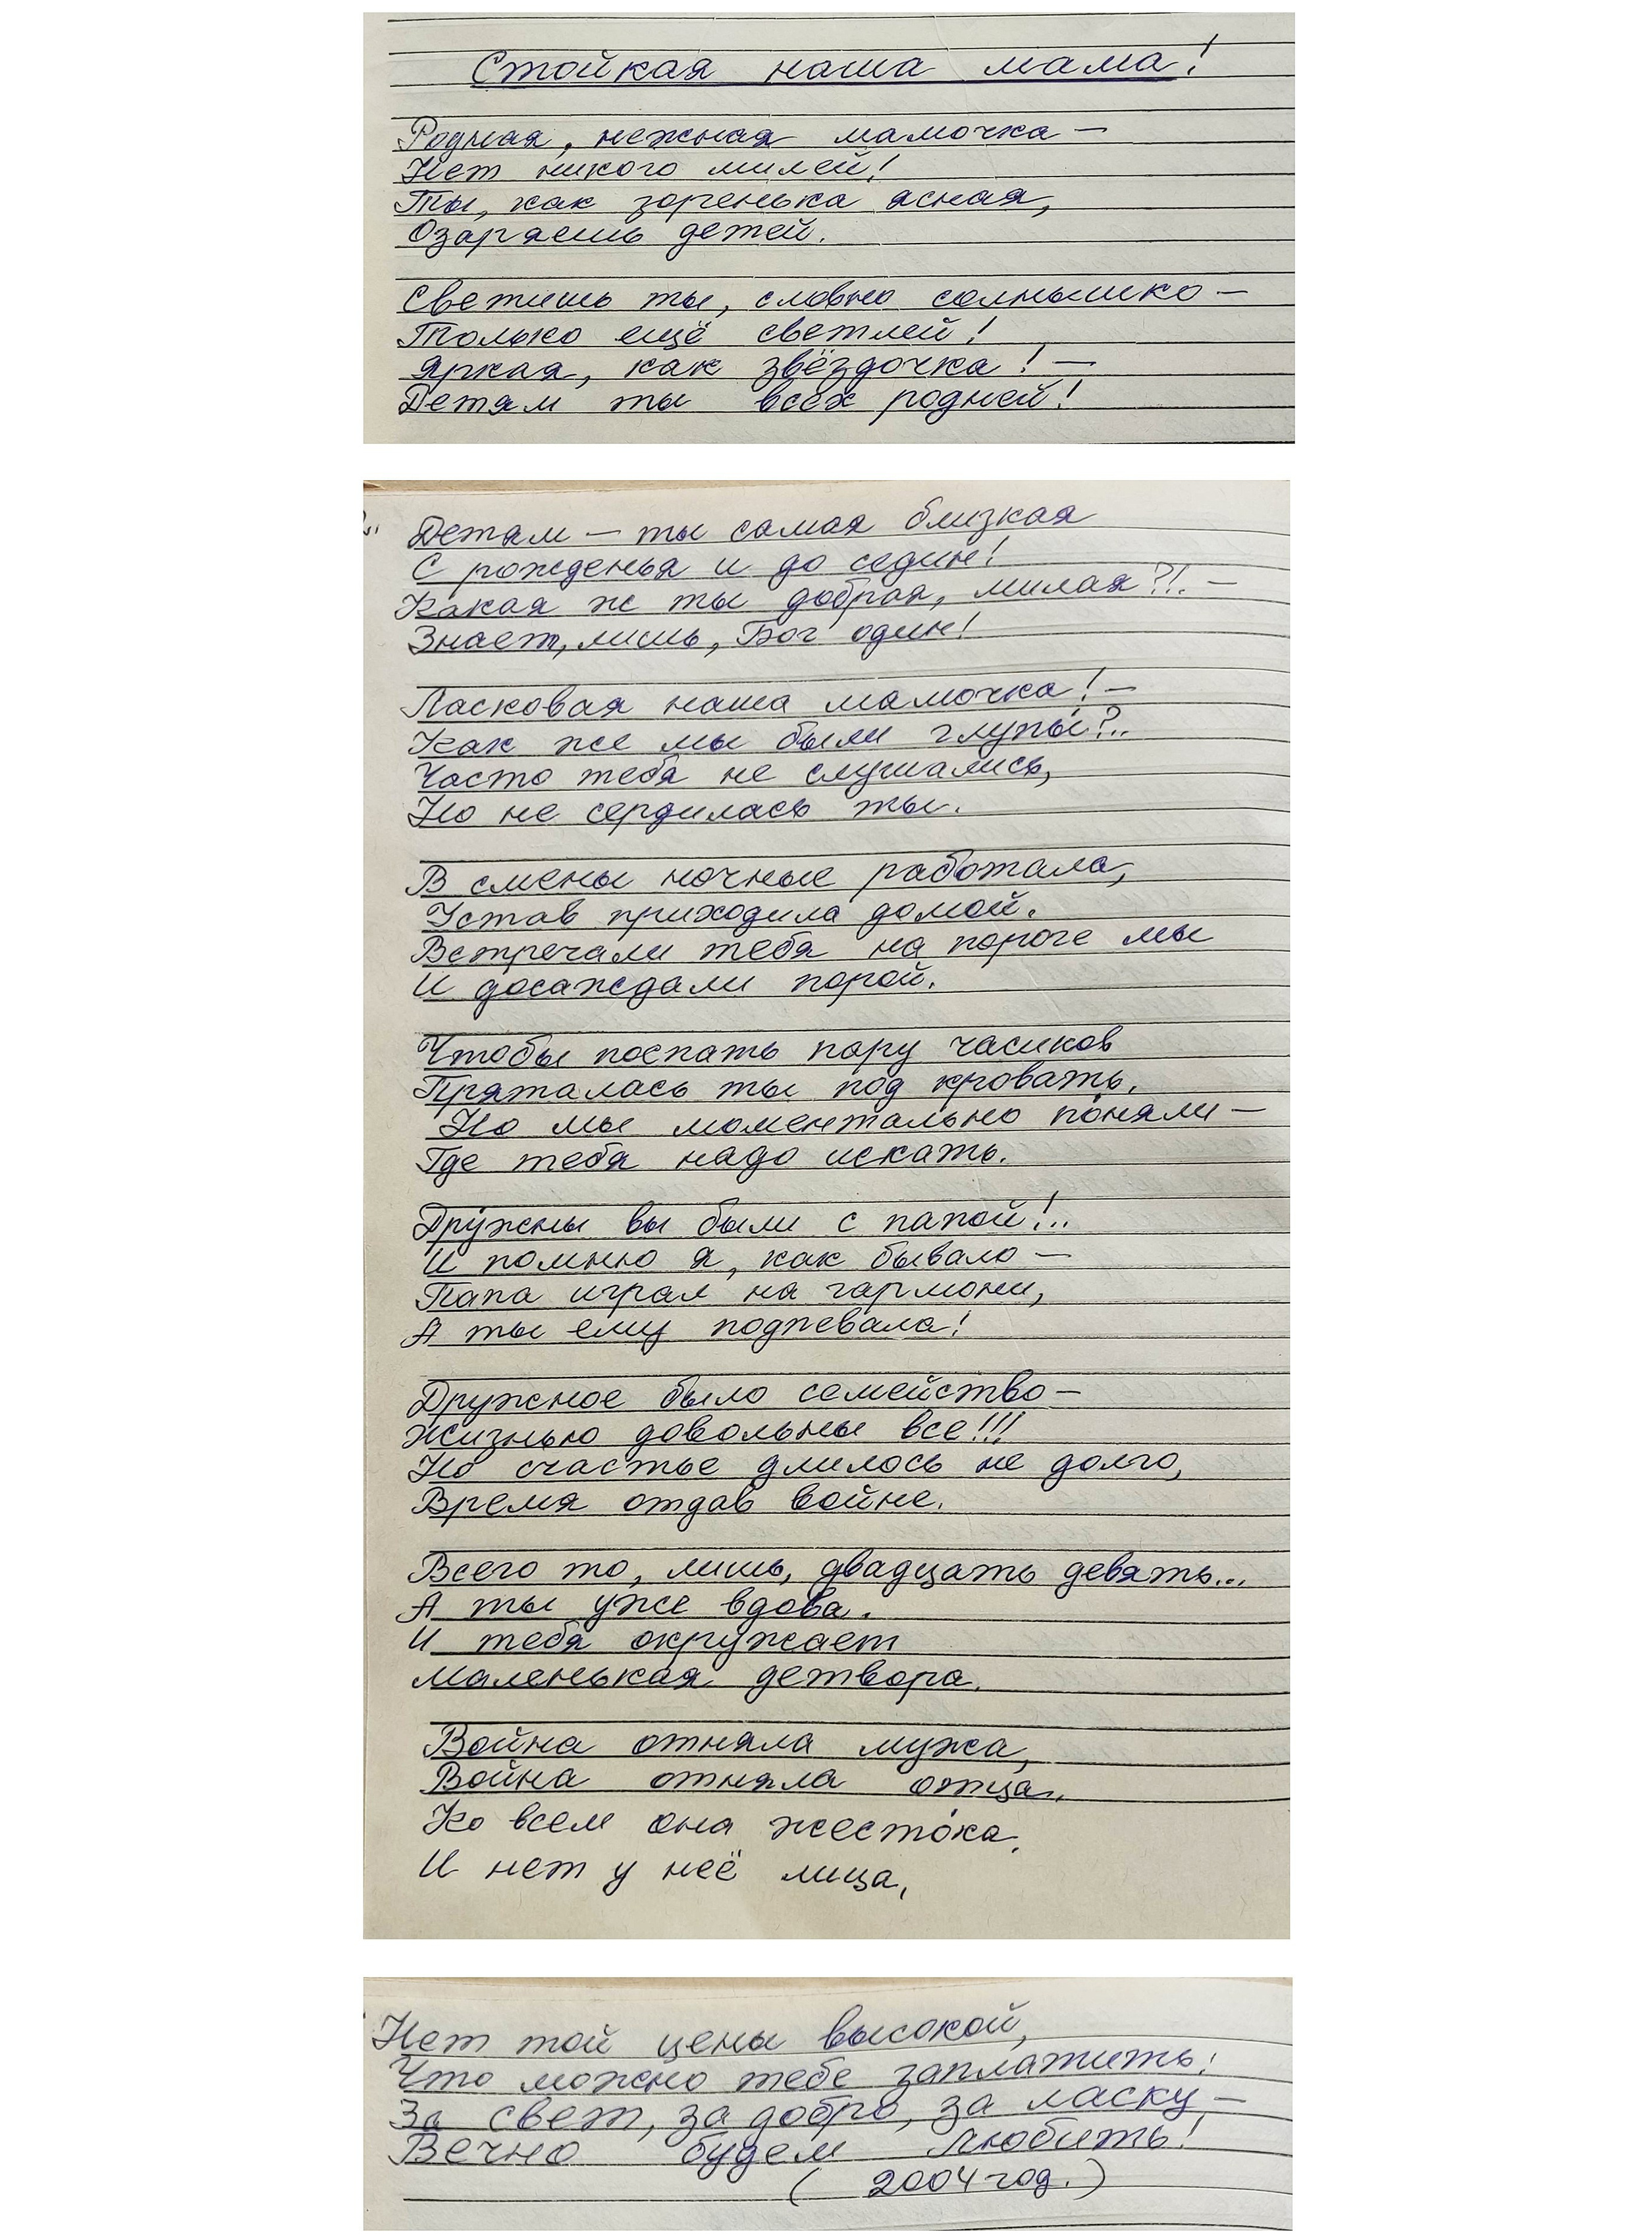 Стойкая наша мама!
Родная, нежная мамочка —
Нет никого милей!
Ты, как зоренька ясная,
Озаряешь детей.
Светишь ты, словно солнышко —
Только ещё светлей!
Яркая, как звёздочка! —
Детям ты всех родней!
Детям — ты самая близкая
С рожденья и до седин!
Какая ж ты добрая, милая?!. —
Знает, лишь, Бог один!
Ласковая наша мамочка! —
Как же мы были глупы?..
Часто тебя не слушались,
Но не сердилась ты.
В смены ночные работала,
Устав приходила домой.
Встречали тебя на пороге мы
И досаждали порой.
Чтобы поспать пару часиков
Пряталась ты под кровать,
Но мы моментально поняли —
Где тебя надо искать.
Дружны вы были с папой!..
И помню я, как бывало —
Папа играл на гармони,
А ты ему подпевала!
Дружное было семейство —
Жизнью довольны все!!!
Но счастье длилось не долго,
Время отдав войне.
Всего то, лишь, двадцать девять...
А ты уже вдова.
И тебя окружает
Маленькая детвора.
Война отняла мужа,
Война отняла отца..
Ко всем она жестока,
И нет у неё лица,
Нет той цены высокой,
Что можно тебе заплатить!
За свет, за добро, за ласку —
Вечно будем любить!
( 2004 год. )